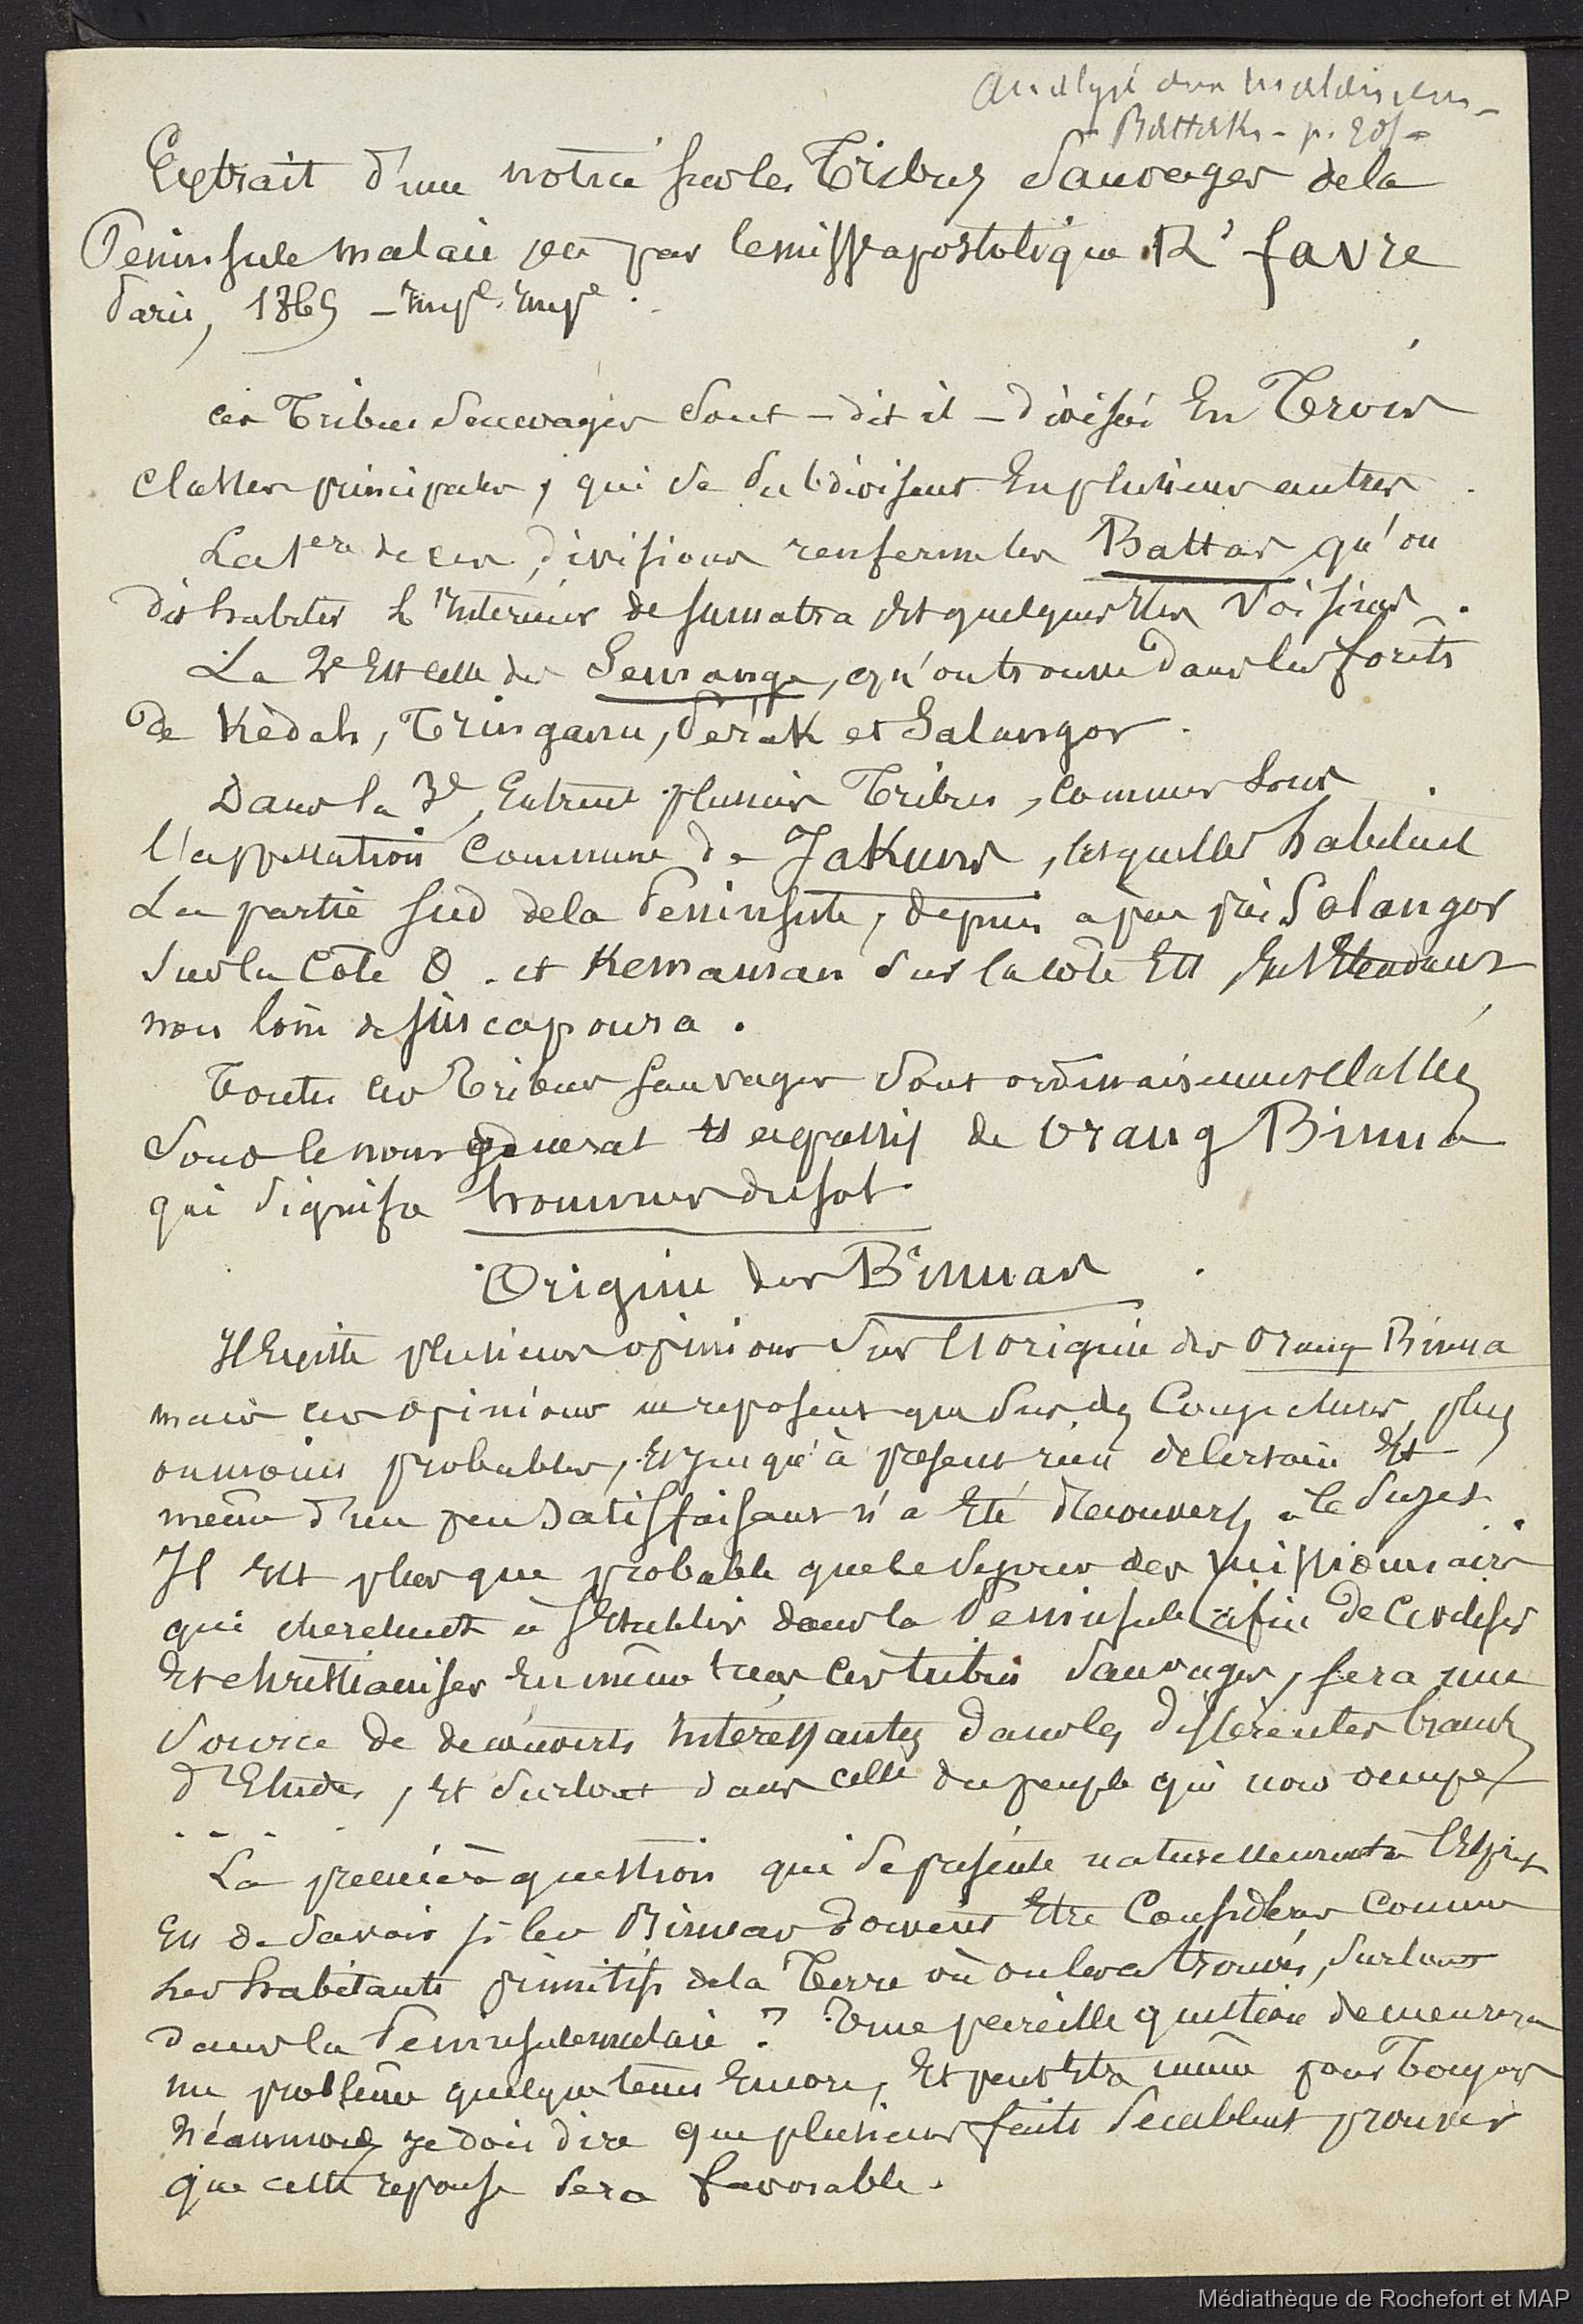 Battaks - p.
Extrait d'une notice sur les Tribus Sauvages de la
Peninsule malaie par le miss apostolique Rd favre
Paris, 1865 - Impe. Impe.
ces Tribus Sauvages Sont - dit il - divisés En Trois
classes principales, qui se subdivisent En plusieurs autres.
La 1ere de ces divisions renferme les Battas qu'on
dit habiter l'Interieur de Sumatra Et quelques Iles Voisines.
La 2e Est celle des Semangs, qu'on trouve dans les forêts
de Kèdah, Tringanu, Pérak et Salangor.
Dans la 3e, Entrent plusieurs Tribus, connues Sous
l'appellation Commune de Jakuns, lesquelles habitent
La partie Sud de la Peninsule, depuis à peu près Salangor
Sur la Côte O. et Kemaman Sur la cote Est, s'Etendant
non loin de Sincapoura.
Toutes les Tribus Sauvages Sont ordinairement classées
Sous le nom général Et expressif de Orang Binua
qui Signifie hommes du sol.
Origine des Binuas
Il Existe plusieurs opinions Sur l'origine des Orang Binua
mais ces opinions ne reposent que Sur des Conjectures, plus
ou moins probables, Et jusqu'à présent rien de certain Et
même d'un peu Satisfaisant n'a Eté découvert à ce Sujet.
Il Est plus que probable que le Sejour des missionnaires
qui cherchent à s'Etablir dans la Peninsule afin de Civiliser
Et christianiser En même tems ces tribus Sauvages, sera une
Source de découverts Intéressantes dans les différentes branches
d'Etudes, Et Surtout dans celle du peuple qui nous occupe
. . . .
La première question qui Se présente naturellement à l'Esprit
Est de Savoir si les Binuas doivent Etre Considérés Comme
les habitants primitifs de la Terre où on les a trouvés, Surtout
dans la Peninsule malaie ? Une pareille question demeurera
un problême quelque tems Encore, Et peut Etre même pour Toujours
Néanmoins je dois dire que plusieurs faits Semblent prouver
que cette reponse Sera favorable.
Médiathèque de Rochefort et MAP